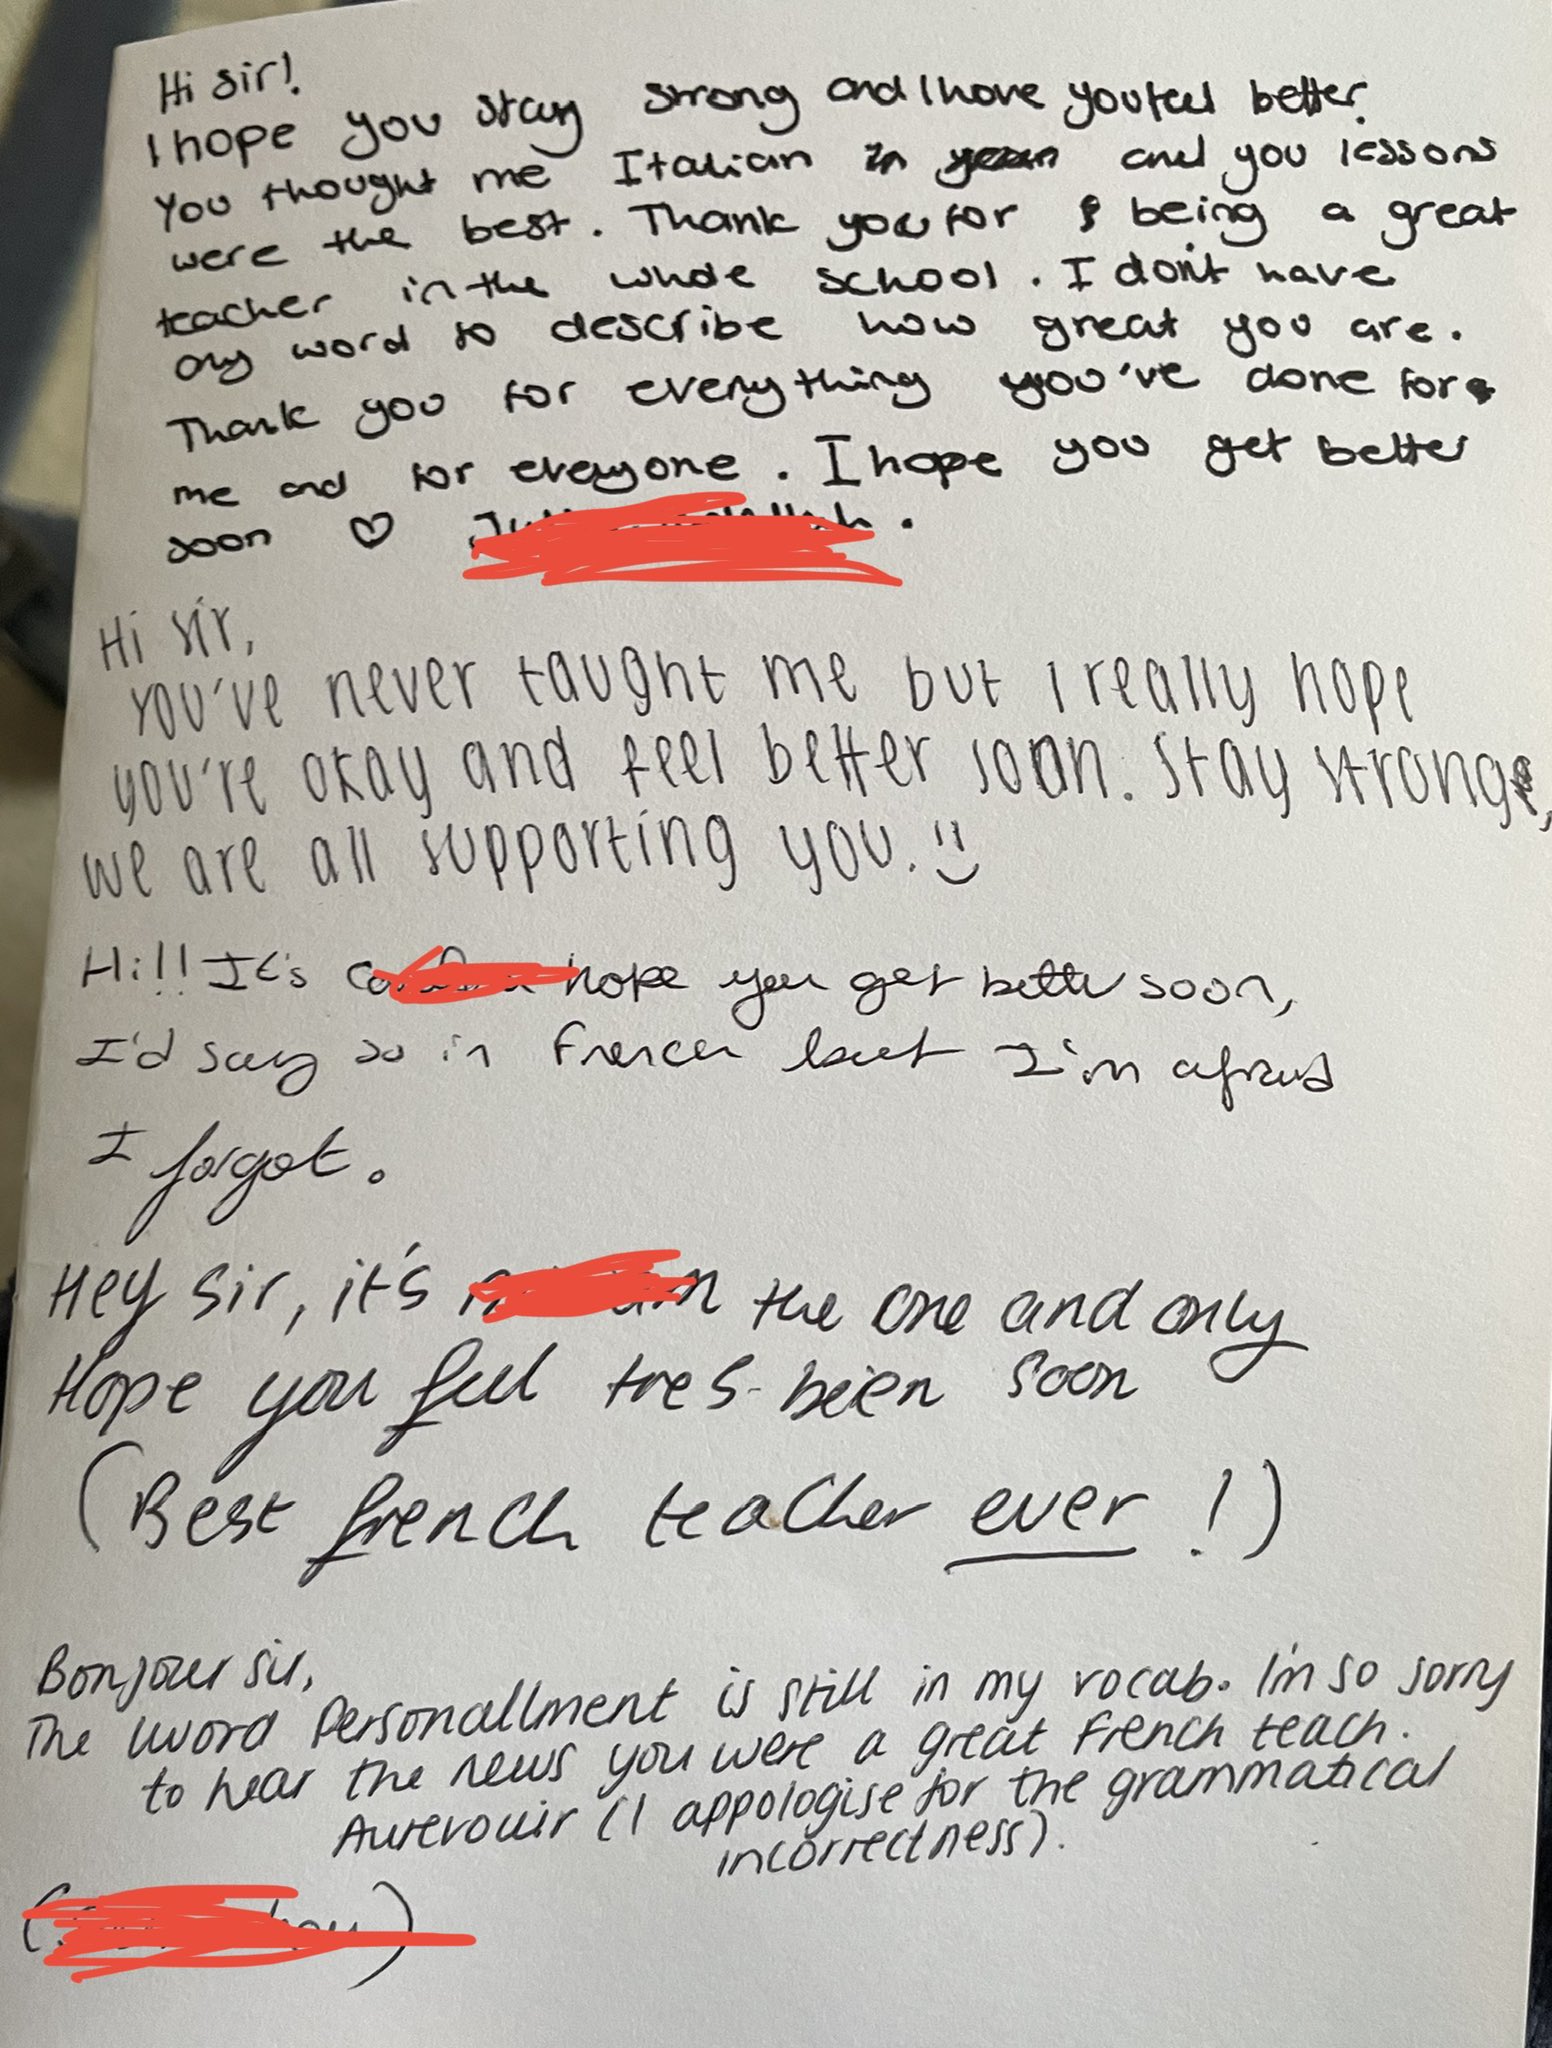 Hi sir!
I hope you stay strong and I hone you feel better.
You thought me Italian in and you lessons
were the best. Thank you for being a great
teacher in the whole school. I don't have
any word to describe how great you are.
Thank you for everything you've done for
me and for everyone. I hope you get better
soon ♡
Hi sir,
You've never taught me but I really hope
you're okay and feel better soon. Stay strong,
we are all supporting you. :)
Hi!! It's hope you get better soon,
I'd say so in french but I'm afraid
I forgot.
Hey Sir, it's the one and only
Hope you feel tres-beien soon
(Best french teacher ever!)
Bonjour sir,
The word Personallment is still in my vocab. I'm so sorry
to hear the news you were a great French teach.
Aurevouir (I appologise for the grammatical
incorrectness).